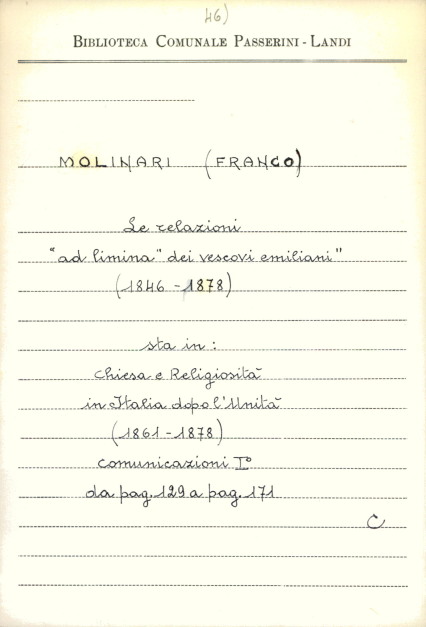 46)
BIBLIOTECA COMUNALE PASSERINI - LANDI
MOLINARI (FRANCO)
Le relazioni
"ad limina" dei vescovi emiliani"
(1846 - 1878)
sta in :
Chiesa e Religiosità
in Italia dopo l'Unità
(1861 - 1878)
comunicazioni I°
da pag. 129 a pag. 171
C